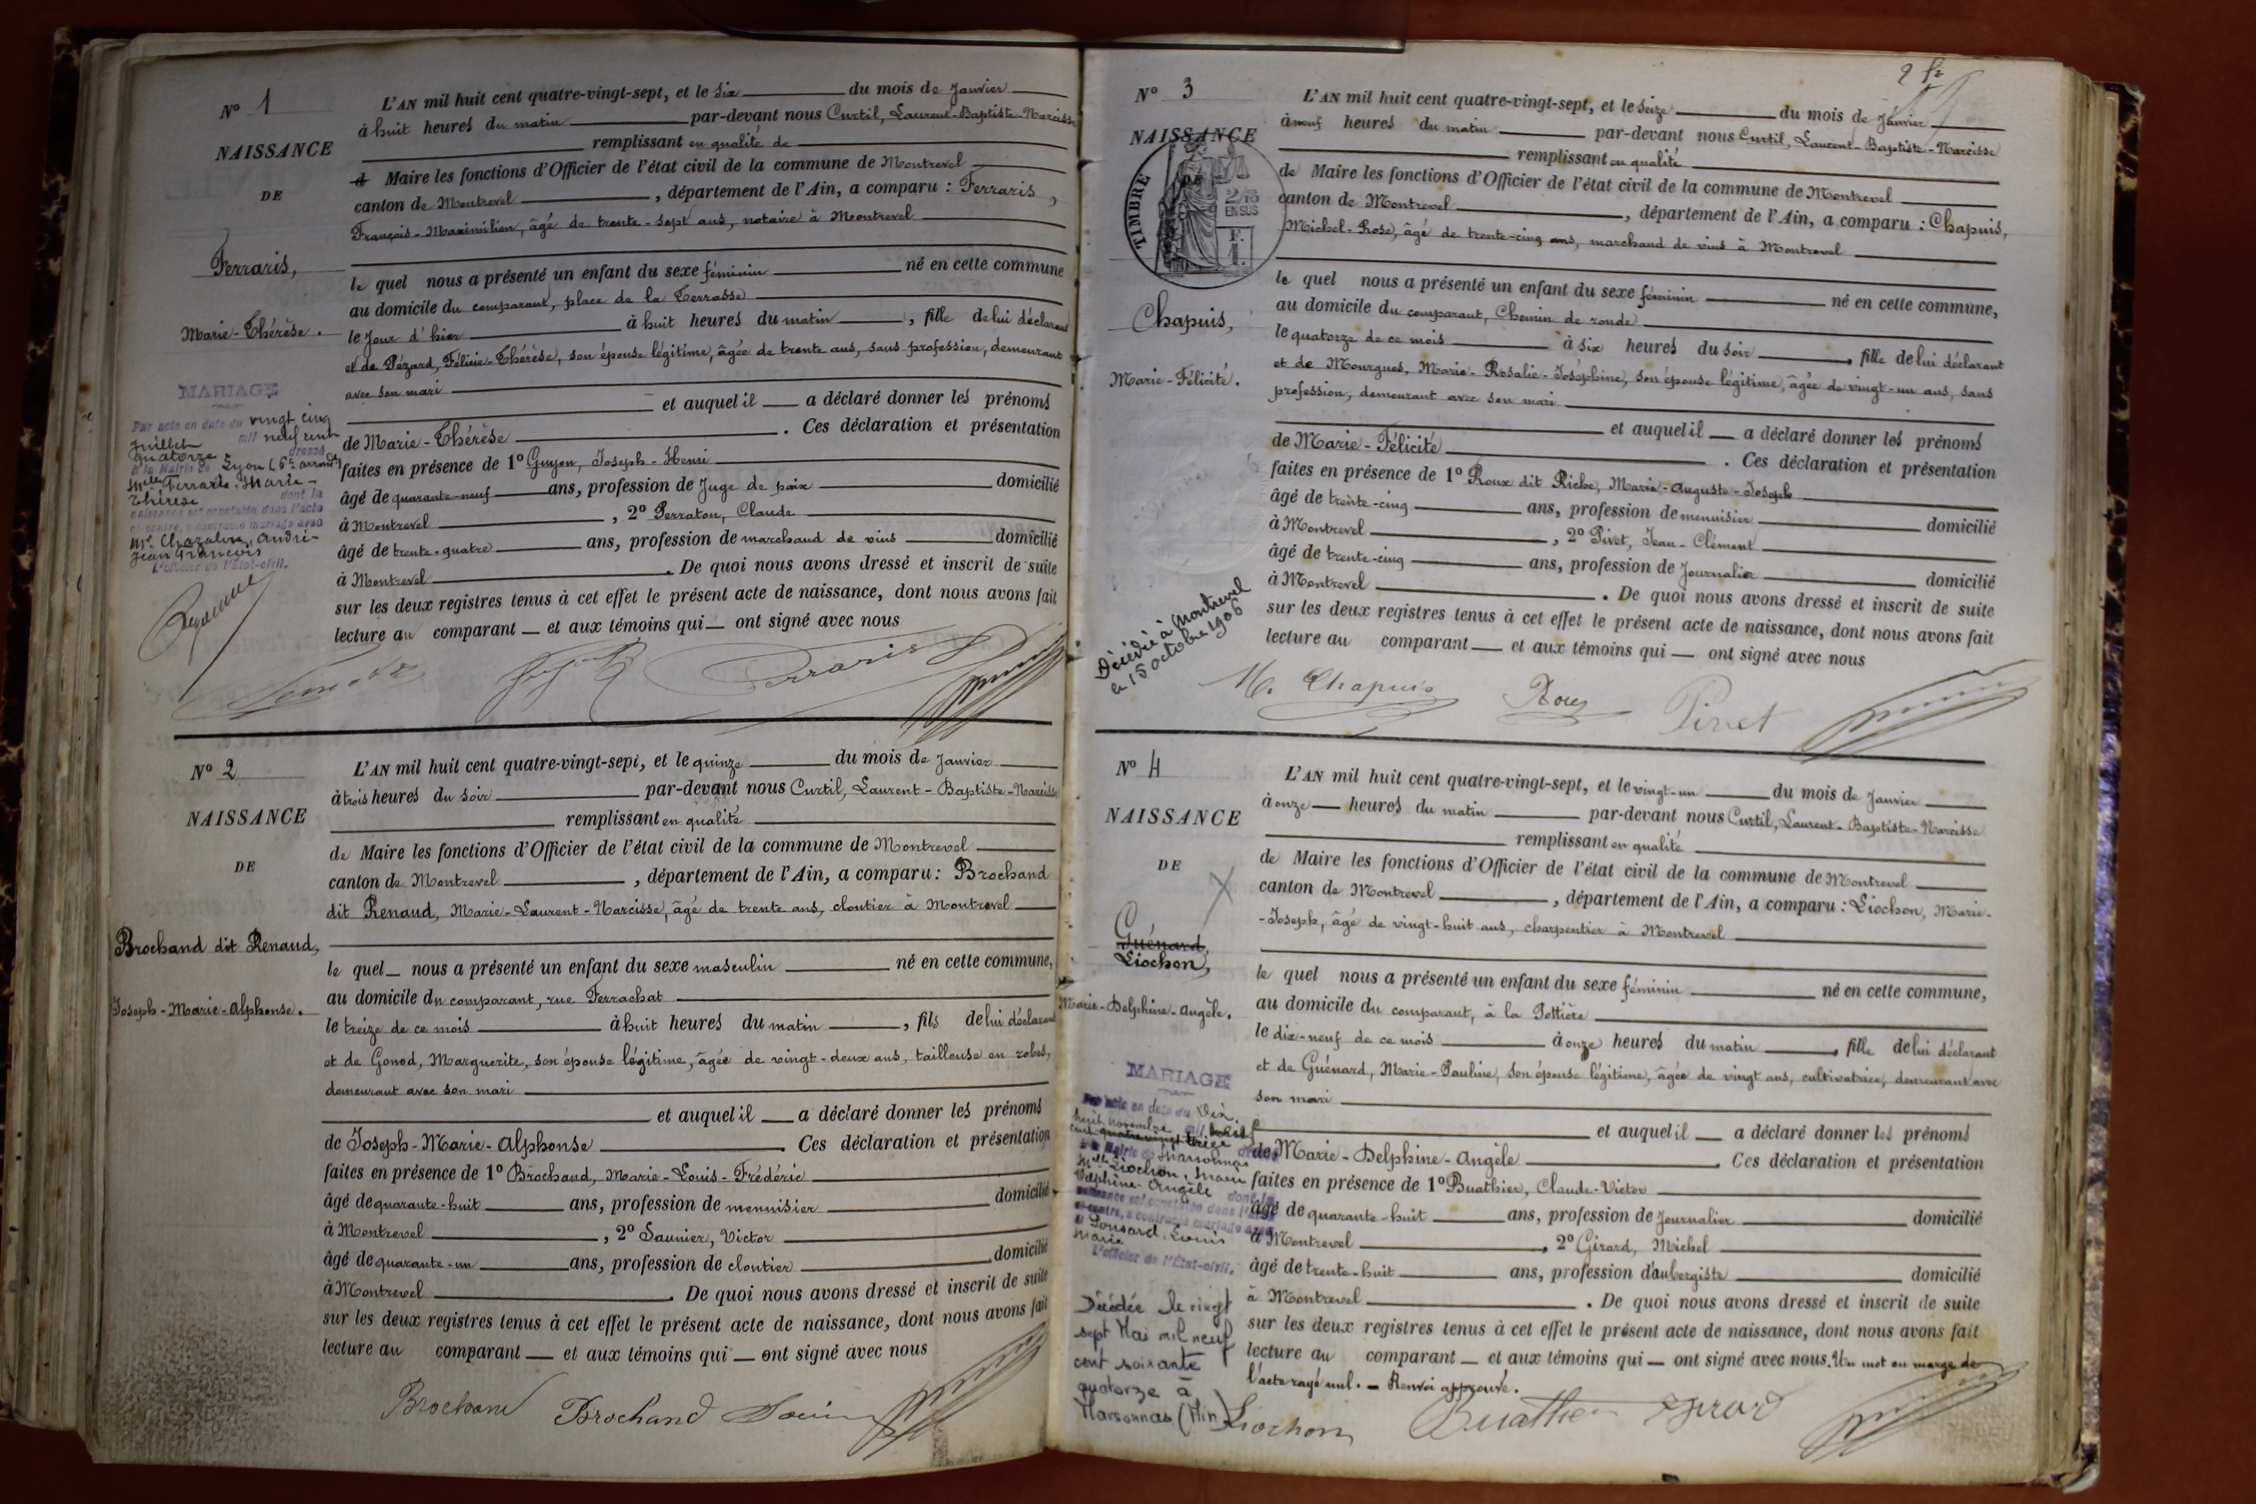 N° 1
NAISSANCE
DE
Ferraris,
Marie-Thérèse.
MARIAGE
Par acte en date du vingt cinq
Juillet mil neuf cent
quatorze dressé
à la Mairie de Lyon (6e arrondt)
Melle Ferraris, Marie-
Thérèse dont la
naissance est constatée dans l'acte
ci-contre, a contracté mariage avec
Mr. Chazalon, André-
Jean François
L'officier de l'État-civil.
L'AN mil huit cent quatre-vingt-sept, et le six du mois de Janvier
à huit heures du matin par-devant nous Curtil, Laurent-Baptiste-Narcisse
remplissant en qualité de
Maire les fonctions d'Officier de l'état civil de la commune de Montrevel
canton de Montrevel, département de l'Ain, a comparu : Ferraris,
François-Maximilien, âgé de trente-sept ans, notaire à Montrevel
le quel nous a présenté un enfant du sexe féminin né en cette commune
au domicile du comparant, place de la Terrasse
le Jour d'hier à huit heures du matin, fille de lui déclarant
et de Pézard, Félicie-Thérèse, son épouse légitime, âgée de trente ans, sans profession, demeurant
avec son mari
et auquel il a déclaré donner les prénoms
de Marie-Thérèse. Ces déclaration et présentation
faites en présence de 1° Guyon, Joseph-Henri
âgé de quarante-neuf ans, profession de Juge de paix domicilié
à Montrevel, 2° Perraton, Claude
âgé de trente-quatre ans, profession de marchand de vins domicilié
à Montrevel. De quoi nous avons dressé et inscrit de suite
sur les deux registres tenus à cet effet le présent acte de naissance, dont nous avons fait
lecture au comparant et aux témoins qui ont signé avec nous
Ferraris
N° 2
NAISSANCE
DE
Brochand dit Renaud,
Joseph-Marie-Alphonse.
L'AN mil huit cent quatre-vingt-sept, et le quinze du mois de Janvier
à trois heures du soir par-devant nous Curtil, Laurent-Baptiste-Narcisse
remplissant en qualité
de Maire les fonctions d'Officier de l'état civil de la commune de Montrevel
canton de Montrevel, département de l'Ain, a comparu : Brochand
dit Renaud, Marie-Laurent-Narcisse, âgé de trente ans, cloutier à Montrevel
le quel nous a présenté un enfant du sexe masculin né en cette commune,
au domicile du comparant, rue Ferrachat
le treize de ce mois à huit heures du matin, fils de lui déclarant
et de Gonod, Marguerite, son épouse légitime, âgée de vingt-deux ans, tailleuse en robes,
demeurant avec son mari
et auquel il a déclaré donner les prénoms
de Joseph-Marie-Alphonse. Ces déclaration et présentation
faites en présence de 1° Brochand, Marie-Louis-Frédéric
âgé de quarante-huit ans, profession de menuisier domicilié
à Montrevel, 2° Saunier, Victor
âgé de quarante-un ans, profession de cloutier domicilié
à Montrevel. De quoi nous avons dressé et inscrit de suite
sur les deux registres tenus à cet effet le présent acte de naissance, dont nous avons fait
lecture au comparant et aux témoins qui ont signé avec nous
Brochand Brochand
N° 3
NAISSANCE
TIMBRE
2/10
EN SUS
Chapuis,
Marie-Félicité.
Décédée à Montrevel
le 15 octobre 1906
L'AN mil huit cent quatre-vingt-sept, et le seize du mois de Janvier
à neuf heures du matin par-devant nous Curtil, Laurent-Baptiste-Narcisse
remplissant en qualité
de Maire les fonctions d'Officier de l'état civil de la commune de Montrevel
canton de Montrevel, département de l'Ain, a comparu : Chapuis,
Michel-Rose, âgé de trente-cinq ans, marchand de vins à Montrevel
le quel nous a présenté un enfant du sexe féminin né en cette commune,
au domicile du comparant, Chemin de ronde
le quatorze de ce mois à six heures du soir, fille de lui déclarant
et de Mourgues, Marie-Rosalie-Joséphine, son épouse légitime, âgée de vingt-un ans, sans
profession, demeurant avec son mari
et auquel il a déclaré donner les prénoms
de Marie-Félicité. Ces déclaration et présentation
faites en présence de 1° Roux dit Riche, Marie-Auguste-Joseph
âgé de trente-cinq ans, profession de menuisier domicilié
à Montrevel, 2° Pivet, Jean-Clément
âgé de trente-cinq ans, profession de Journalier domicilié
à Montrevel. De quoi nous avons dressé et inscrit de suite
sur les deux registres tenus à cet effet le présent acte de naissance, dont nous avons fait
lecture au comparant et aux témoins qui ont signé avec nous
M. Chapuis Roux Pivet
N° 4
NAISSANCE
DE
Guénard,
Liochon,
Marie-Delphine-Angèle.
MARIAGE
Par acte en date du Dix
huit novembre mil huit
cent quatre vingt treize dressé
à la Mairie de Marsonnas
Melle Liochon, Marie
Delphine-Angèle dont la
naissance est constatée dans l'acte
ci-contre, a contracté mariage avec
Louis
Marie
L'officier de l'État-civil.
Décédée le vingt
sept Mai mil neuf
cent soixante
quatorze à
Marsonnas (Ain)
L'AN mil huit cent quatre-vingt-sept, et le vingt-un du mois de Janvier
à onze heures du matin par-devant nous Curtil, Laurent-Baptiste-Narcisse
remplissant en qualité
de Maire les fonctions d'Officier de l'état civil de la commune de Montrevel
canton de Montrevel, département de l'Ain, a comparu : Liochon, Marie-
-Joseph, âgé de vingt-huit ans, charpentier à Montrevel
le quel nous a présenté un enfant du sexe féminin né en cette commune,
au domicile du comparant, à la Pottière
le dix-neuf de ce mois à onze heures du matin, fille de lui déclarant
et de Guénard, Marie-Pauline, son épouse légitime, âgée de vingt ans, cultivatrice, demeurant avec
son mari
et auquel il a déclaré donner les prénoms
de Marie-Delphine-Angèle. Ces déclaration et présentation
faites en présence de 1° Buathier, Claude-Victor
âgé de quarante-huit ans, profession de Journalier domicilié
à Montrevel, 2° Girard, Michel
âgé de trente-huit ans, profession d'aubergiste domicilié
à Montrevel. De quoi nous avons dressé et inscrit de suite
sur les deux registres tenus à cet effet le présent acte de naissance, dont nous avons fait
lecture au comparant et aux témoins qui ont signé avec nous. Un mot en marge de
l'acte rayé nul. - Renvoi approuvé.
Liochon Buathier Girard